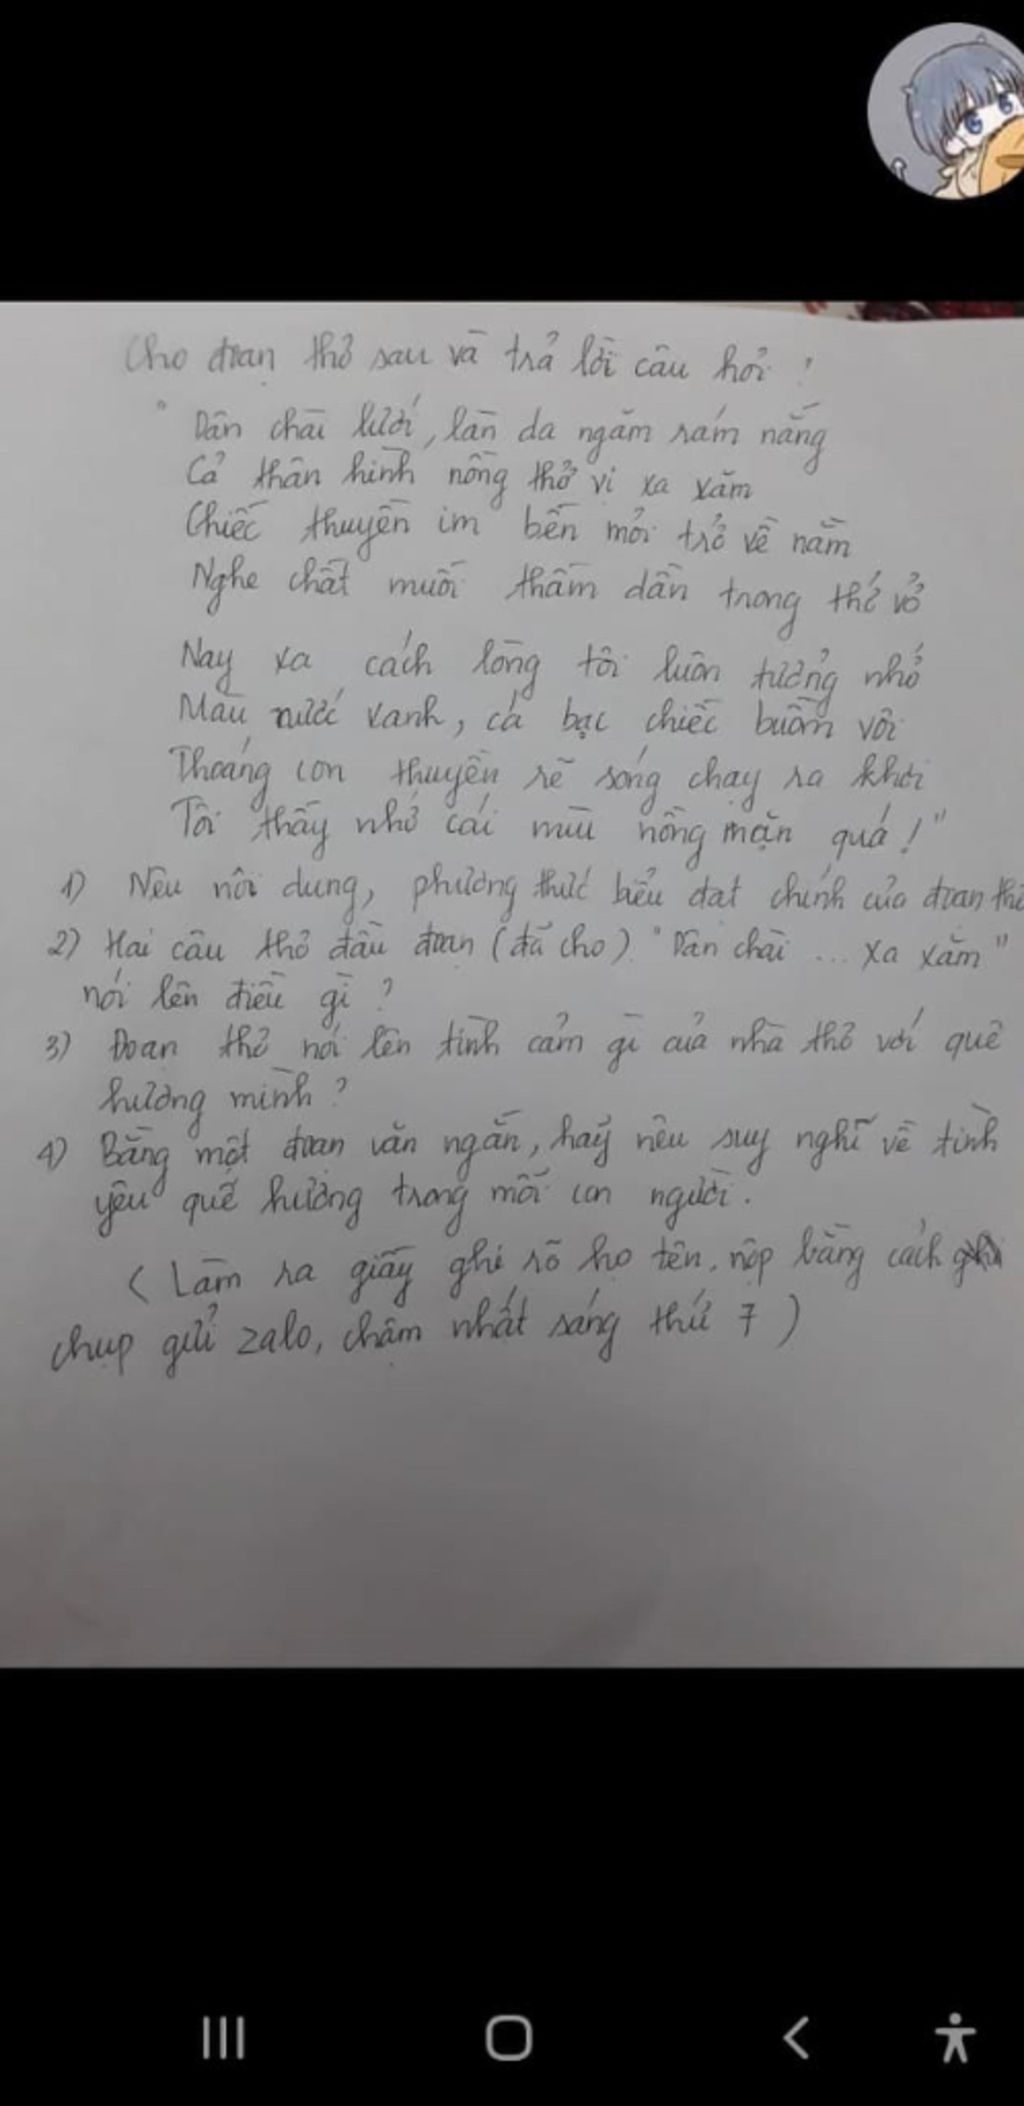 Cho đoạn thơ sau và trả lời câu hỏi:
"Dân chài lưới, làn da ngăm rám nắng
Cả thân hình nồng thở vị xa xăm
Chiếc thuyền im bến mỏi trở về nằm
Nghe chất muối thấm dần trong thớ vỏ
Nay xa cách lòng tôi luôn tưởng nhớ
Màu nước xanh, cá bạc chiếc buồm vôi
Thoáng con thuyền rẽ sóng chạy ra khơi
Tôi thấy nhớ cái mùi nồng mặn quá!"
1) Nêu nội dung, phương thức biểu đạt chính của đoạn thơ
2) Hai câu thơ đầu đoạn (đã cho). "Dân chài ... xa xăm"
nói lên điều gì?
3) Đoạn thơ nói lên tình cảm gì của nhà thơ với quê
hương mình?
4) Bằng một đoạn văn ngắn, hãy nêu suy nghĩ về tình
yêu quê hương trong mỗi con người.
(Làm ra giấy ghi rõ họ tên, nộp bằng cách
chụp gửi zalo, chậm nhất sáng thứ 7)